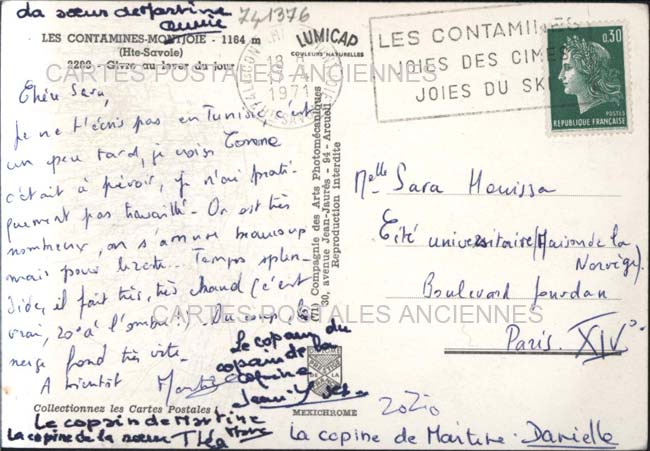 La sœur de Martine
Annie
741376
LES CONTAMINES-MONTJOIE - 1164 m
(Hte-Savoie)
2288 - Givre au lever du jour
LUMICAP
COULEURS NATURELLES
1971
LES CONTAMINES
JOIES DES CIMES
JOIES DU SKI
0,30
POSTES
REPUBLIQUE FRANÇAISE
CARTES POSTALES ANCIENNES
Chère Sara,
Je ne t'écris pas en Tunisie, c'est
un peu tard, je vois! Comme
c'était à prévoir, je n'ai prati-
quement pas travaillé. On est très
nombreux, on s'amuse beaucoup
mais pour bzote... Temps splen-
dide, il fait très, très chaud (c'est
vrai, 20° à l'ombre!). Du coup, la
neige fond très vite.
A bientôt Martine
(71) Compagnie des Arts Photomécaniques
30, avenue Jean-Jaurès - 94 - Arcueil
Reproduction interdite
Melle Sara Houissa
Cité universitaire (Maison de la
Norvège)
Boulevard Jourdan
Paris XIVo
CARTES POSTALES ANCIENNES
Le copain du
copain de la
copine
Jean-Yves
MEXICHROME
Collectionnez les Cartes Postales !
Le copain de Martine
Marc
La copine de la sœur Théa
Zozio
La copine de Martine - Danielle